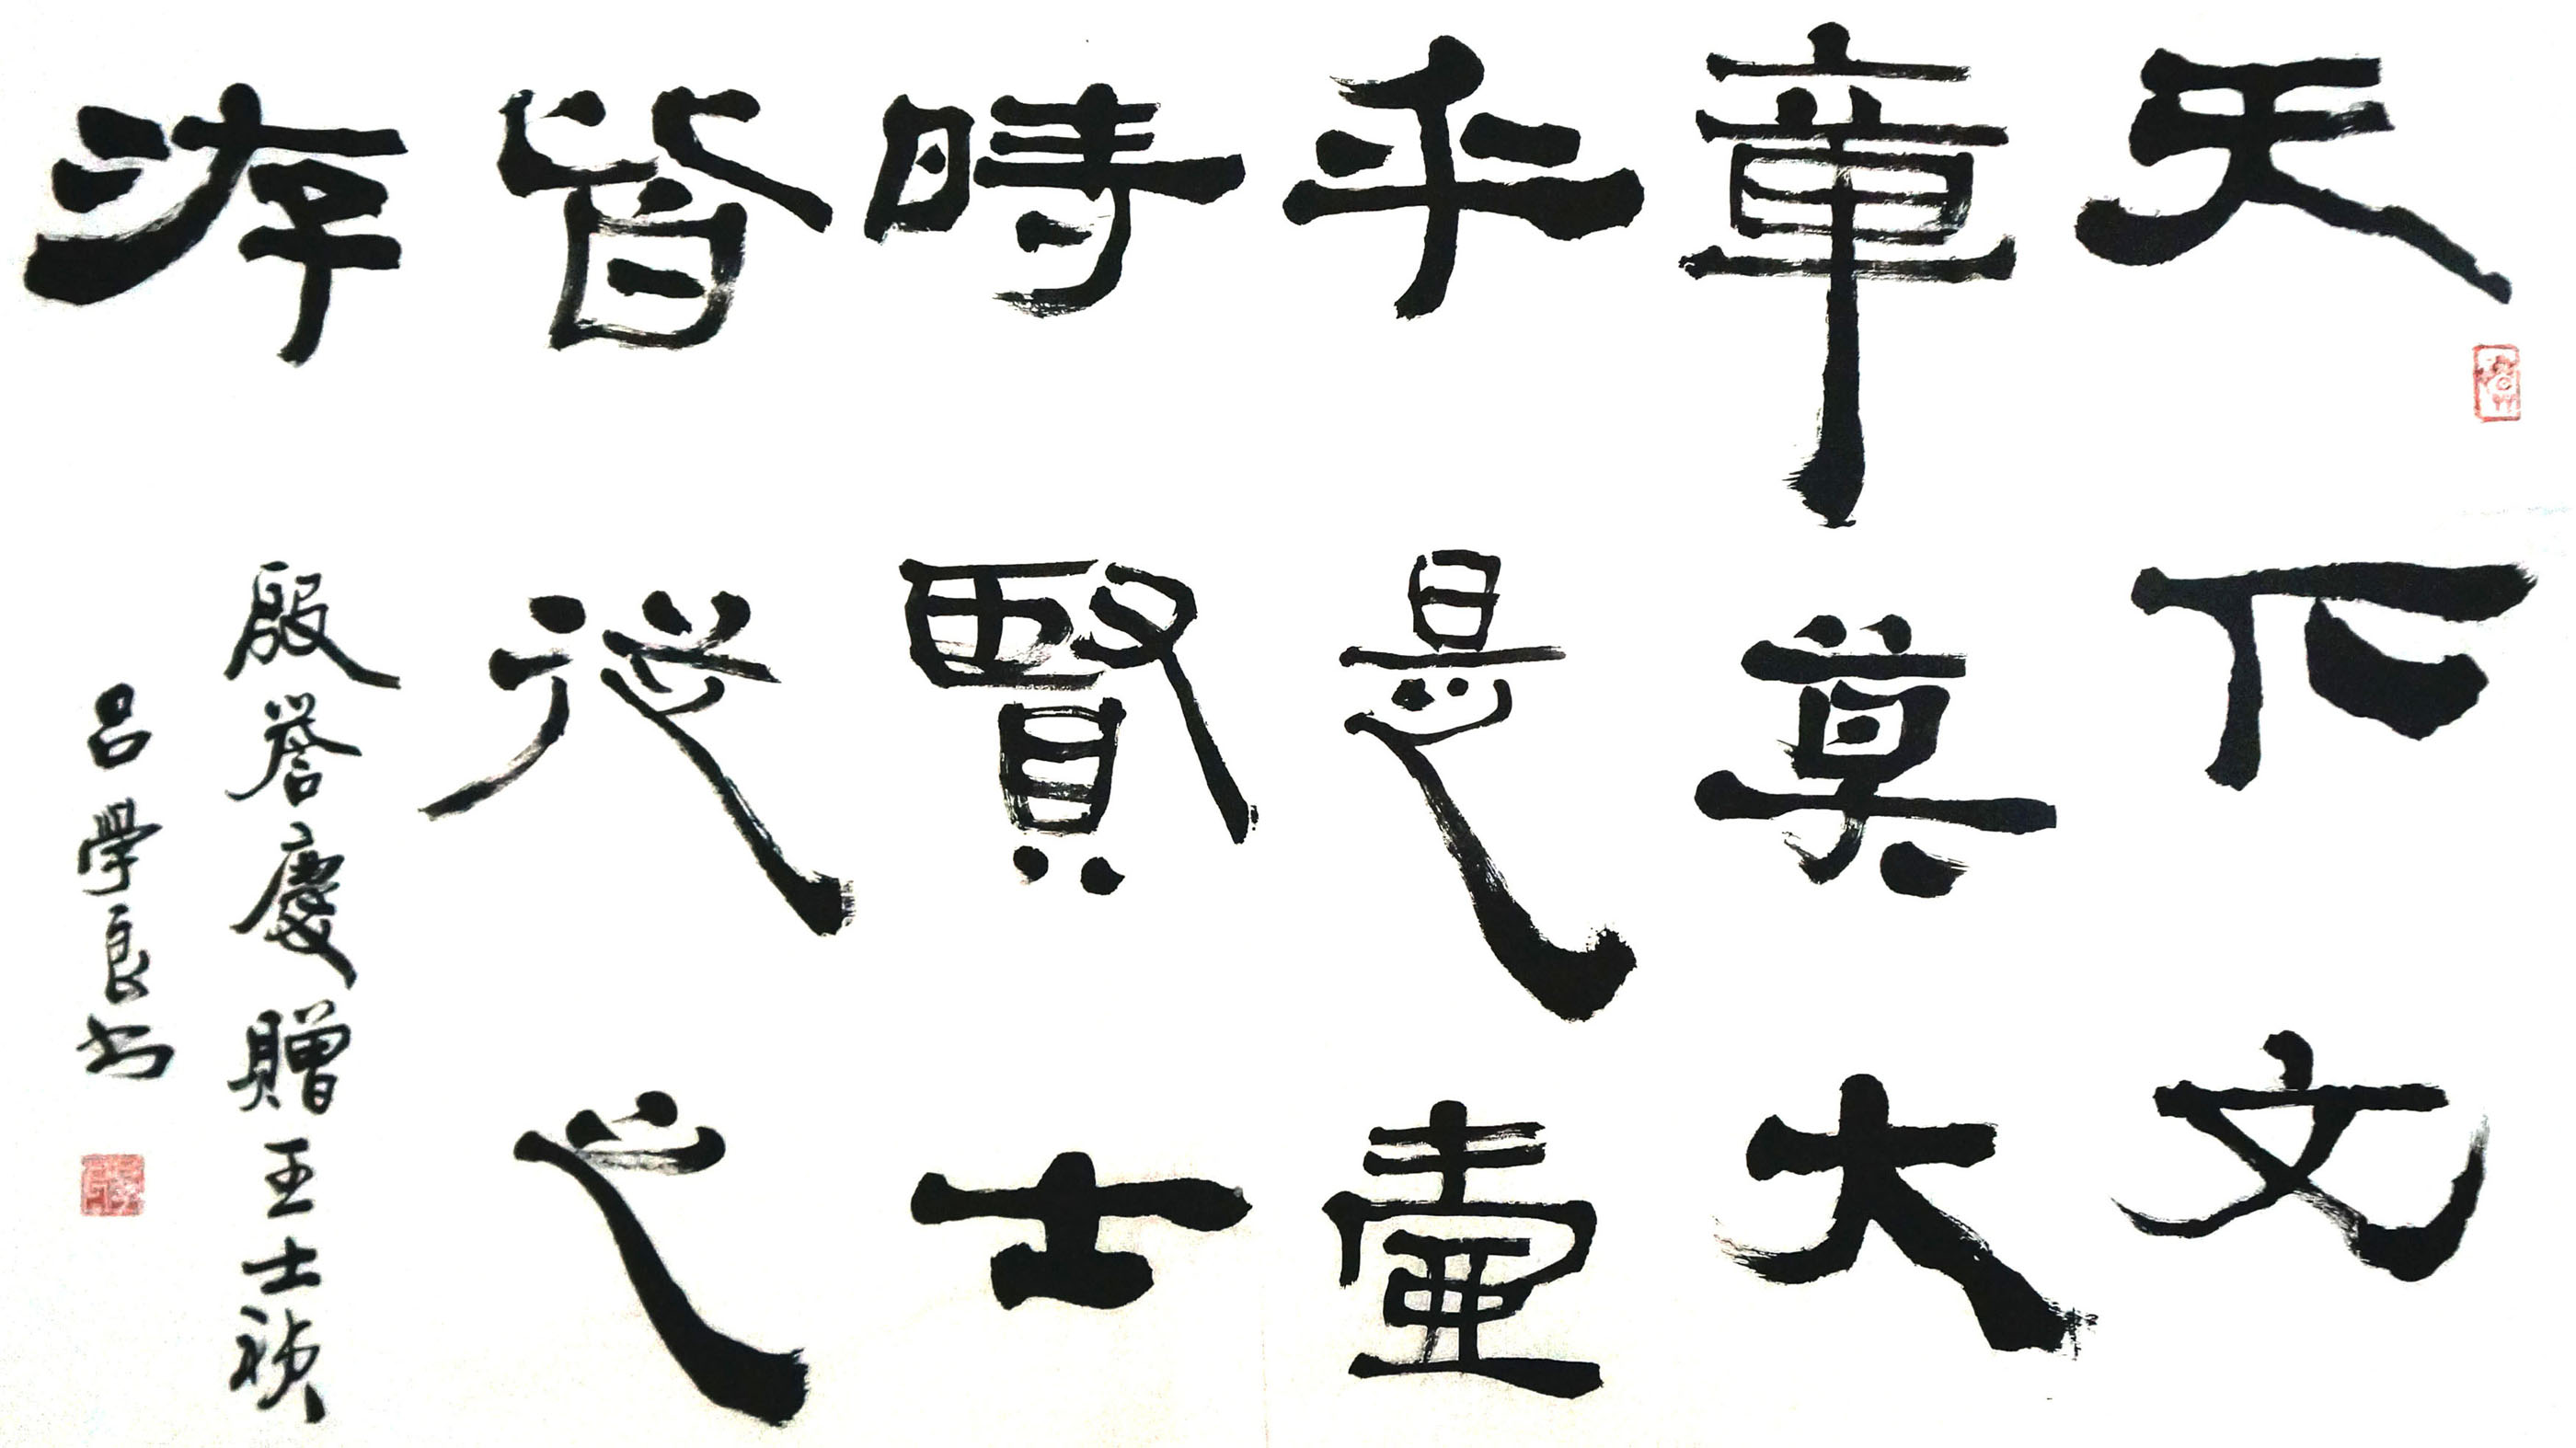 天下文
章莫大
乎是壺
時賢士
皆從之
游
殷誉慶贈王士禎
吕學良书